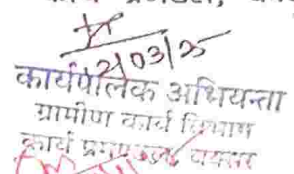 12/03/25
कार्यपालक अभियन्ता
ग्रामीण कार्य विभाग
कार्य प्रमण्डल, बक्सर